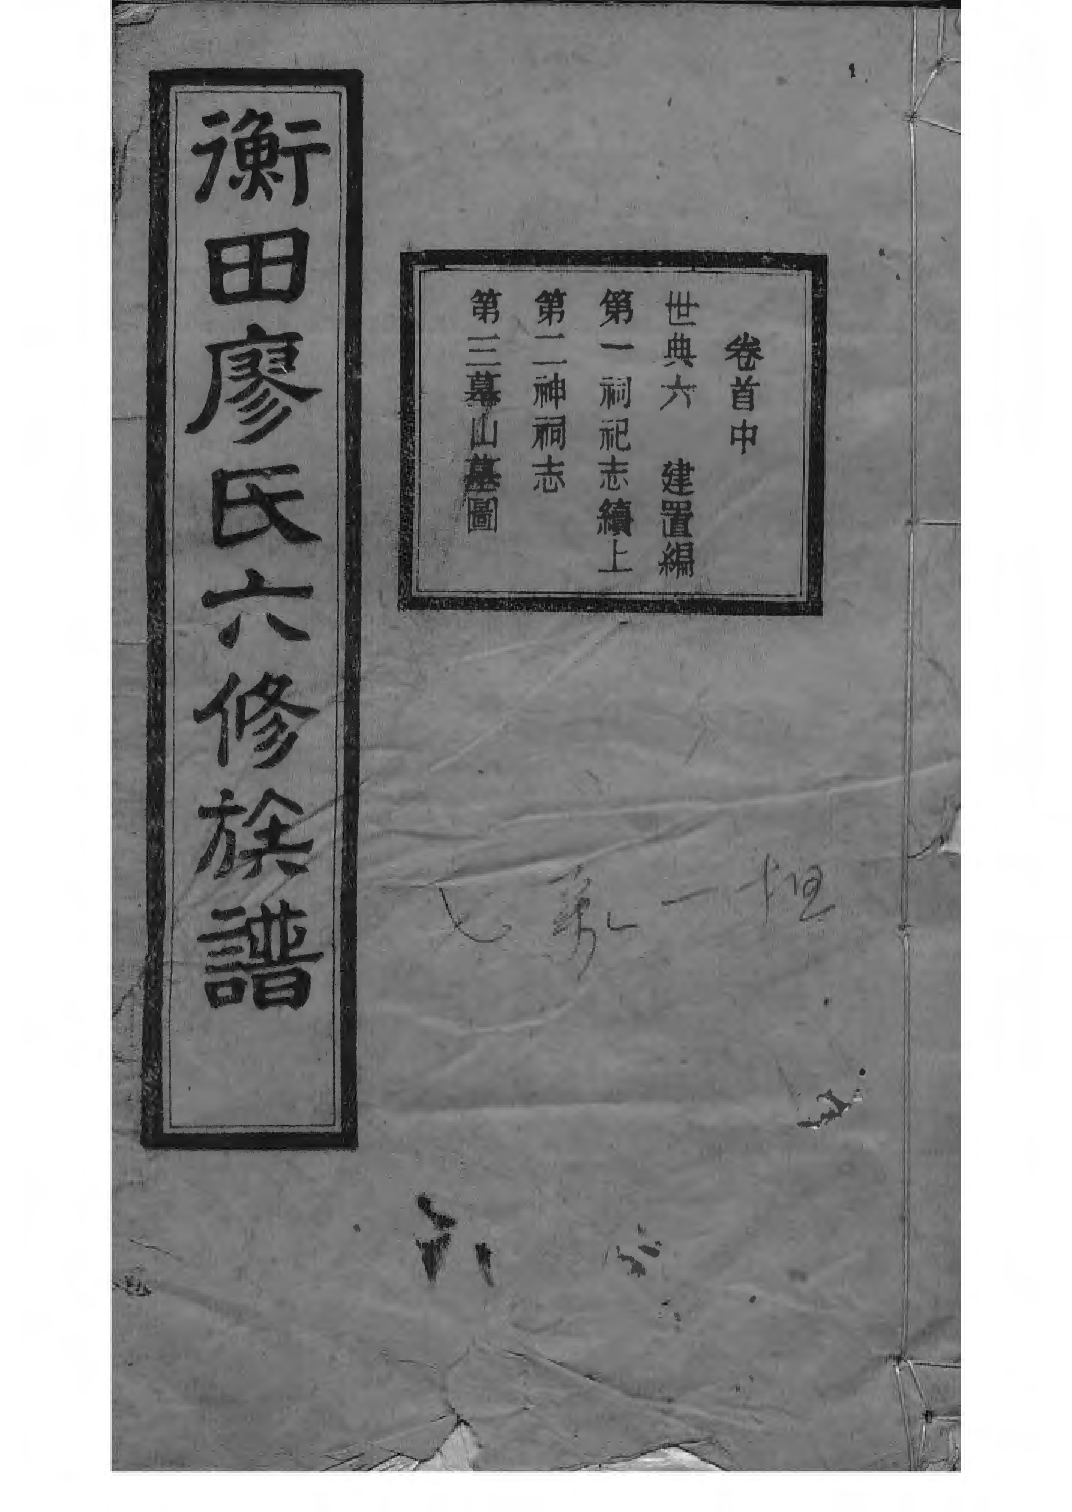 卷首中
世典六 建置編
第一祠祀志續上
第二神祠志
第三墓山墓圖
衡田廖氏六修族譜